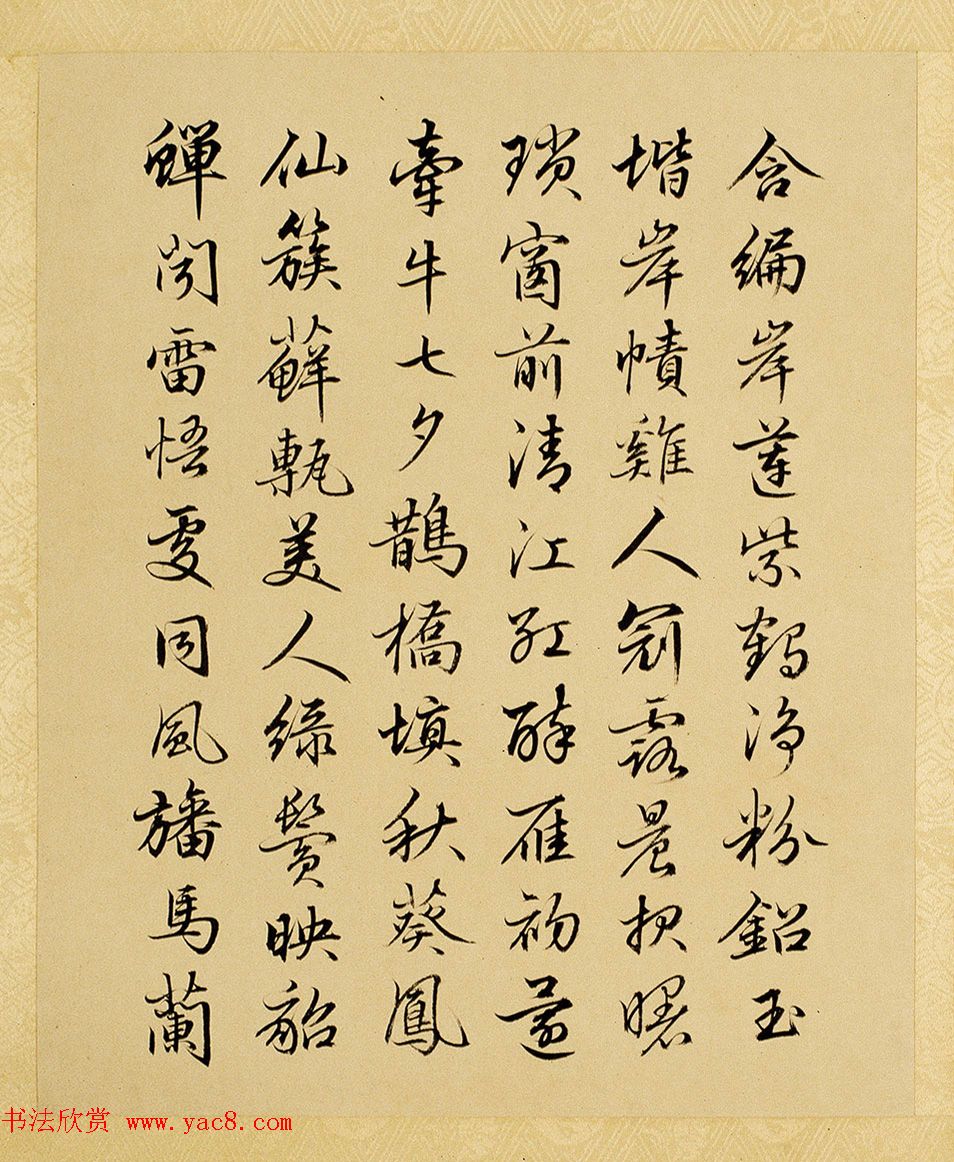 含編岸蓮紫鶴淨粉鉛玉
堦岸幘雞人冠露晨拒曙
瑣窗前清江紅醉雁初還
牽牛七夕鵲橋填秋葵鳳
仙簇蘚甎美人綠鬢映貂
蟬閃雷悟雯同風旛馬蘭
书法欣赏 www.yac8.com